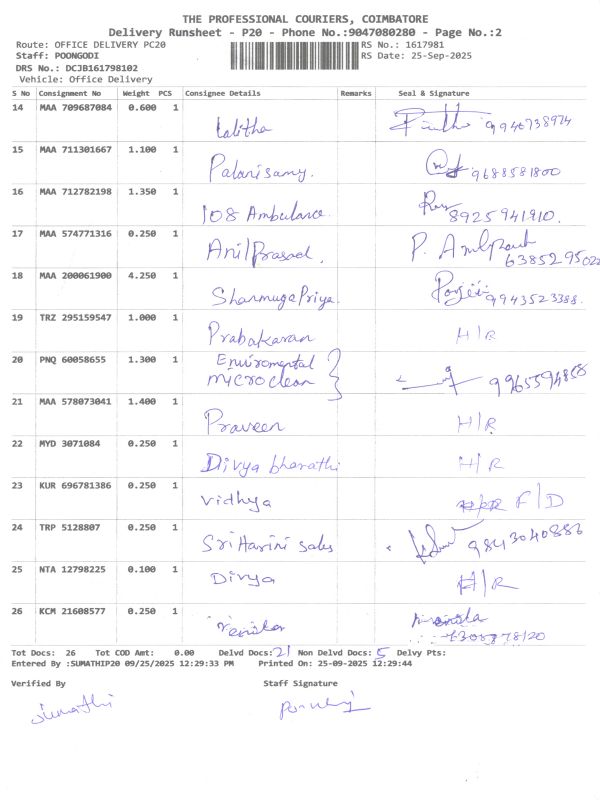 THE PROFESSIONAL COURIERS, COIMBATORE
Delivery Runsheet - P20 - Phone No.:9047080280 - Page No.:2
Route: OFFICE DELIVERY PC20 RS No.: 1617981
Staff: POONGODI RS Date: 25-Sep-2025
DRS No.: DCJB161798102
Vehicle: Office Delivery
S No Consignment No Weight PCS Consignee Details Remarks Seal & Signature
14 MAA 709687084 0.600 1 Lalitha
15 MAA 711301667 1.100 1 Palanisamy. 9688581800
16 MAA 712782198 1.350 1 108 Ambulance. 8925941910.
17 MAA 574771316 0.250 1 Anil Prasad.
18 MAA 200061900 4.250 1 Shanmuga Priya. 9943523388.
19 TRZ 295159547 1.000 1 Prabakaran H/R
20 PNQ 60058655 1.300 1 Enviromental
microclean 9965594858
21 MAA 578073041 1.400 1 Praveen H/R
22 MYD 3071084 0.250 1 Divya bharathi H/R
23 KUR 696781386 0.250 1 Vidhya F/D
24 TRP 5128807 0.250 1 Sri Harini sales 9843040886
25 NTA 12798225 0.100 1 Divya H/R
26 KCM 21608577 0.250 1
Tot Docs: 26 Tot COD Amt: 0.00 Delvd Docs: 21 Non Delvd Docs: 5 Delvy Pts:
Entered By :SUMATHIP20 09/25/2025 12:29:33 PM Printed On: 25-09-2025 12:29:44
Verified By Staff Signature
Sumathi